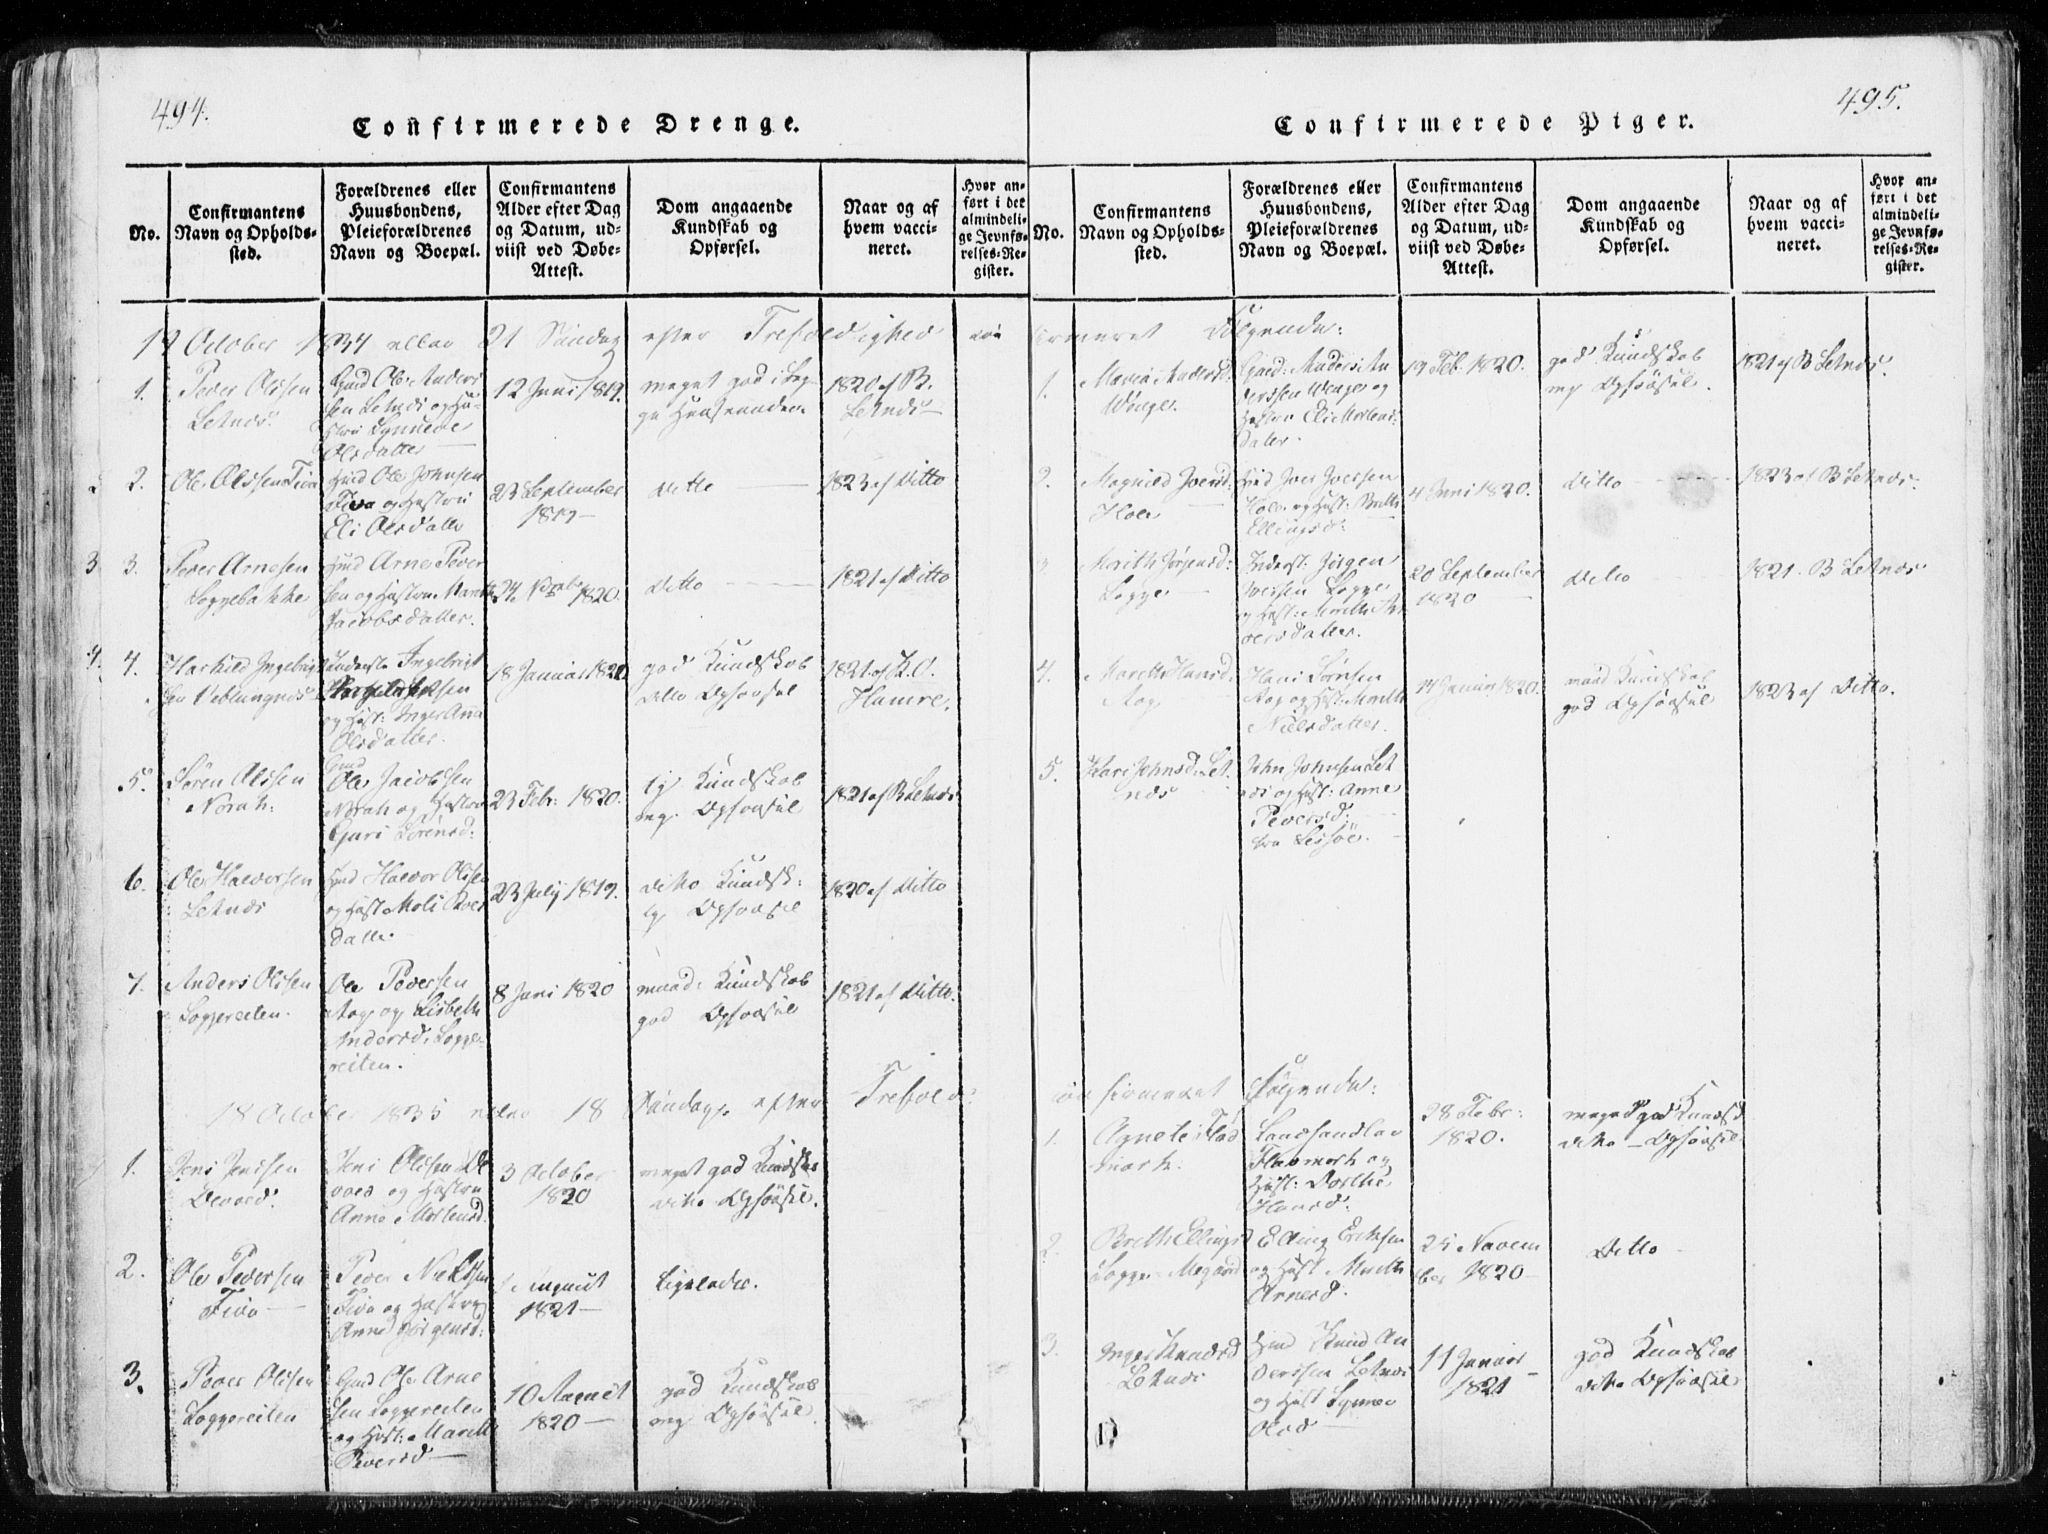 494.
Confirmerede Drenge.
No.
Confirmantens
Navn og Opholds-
sted.
Forældrenes eller
Huusbondens,
Pleieforældrenes
Navn og Boepæl.
Confirmantens
Alder efter Dag
og Datum, ud-
viist ved Døbe-
Attest.
Dom angaaende
Kundskab og
Opførsel.
Naar og af
hvem vacci-
neret.
Hvor an-
ført i det
almindeli-
ge Jevnfø-
relses-Re-
gister.
19 October 1834 eller 21 Søndag efter Trefoldighed
1.
Peder Olssen
Letnæs.
Gmd Ole Anders
sen Letnæs og Hu-
stru
Olsdatter
12 Juni 1819.
meget god i beg
ge Henseender
1820 af B.
Letnæs
2.
Ole Olssen Fiva
Gmd Ole Johnsen
Fiva og Hustru
Eli Olsdatter
23 September
1819
ditto
1823 af ditto
3
3.
Peder Arnesen
Soggebakke
Hmd Arne Peder
sen og Hustru Mareth
Jacobsdatter.
24 Novbr 1820.
ditto
1821 af ditto
4.
4.
Harkild Ingebrigt
sen Veblungnæs
Inderst Ingebrigt
og Hust: Inger Anna
Olsdatter.
18 Januar 1820
god Kundskab
ditto Opførsel
1821 af K.O.
Hamre.
5.
Søren Olssen
Norah.
Gmd
Ole Jacobsen
Norah og Hustru
Guri Sørensd:
23 Febr: 1820.
tg Kundskab
mg. Opførsel
1821 af B Letnæs
6.
Ole Halvorsen
Letnæs
Hmd Halvor Olssen
og Hust Mali Peders
datter
23 July 1819.
ditto Kundsk:
tg Opførsel
1820 af ditto
7.
Anders Olssen
Soggereiten.
Ole Pedersen
Aag og Lisbeth
Andersd: Sogge-
reiten.
8 Juni 1820
maad: Kundskab
god Opførsel
1821 af ditto.
18 October 1835 eller 18 Søndag efter Trefold:
1.
Jens Jenssen
Devold.
Jens Olssen De
vold og Hustru
Anne Mortensd.
3 October
1820
meget god Kundskab
ditto Opførsel.
2.
Ole Pedersen
Fiva
Peder Nielssen
Fiva og Hustru
Anne Jørgensd:
August
1821
Ligeledes.
3.
Peder Olssen
Soggereiten
Gmd Ole Arne
sen Soggereiten
og Hust: Mareth
Pedersd
10 August
1820
god Kundskab
mg Opførsel.
495.
Confirmerede Piger.
No.
Confirmantens
Navn og Opholds-
sted.
Forældrenes eller
Huusbondens,
Pleieforældrenes
Navn og Boepæl.
Confirmantens
Alder efter Dag
og Datum, ud-
viist ved Døbe-
Attest.
Dom angaaende
Kundskab og
Opførsel.
Naar og af
hvem vacci-
neret.
Hvor an-
ført i det
almindeli-
ge Jevnfø-
relses-Re-
gister.
firmeret Følgende:
1.
Maria Andersd:
Wenge.
Gaard: Anders An
derssen Wenge og
Hustru Eli Mortens
datter.
19 Feb. 1820.
god Kundskab
mg Opførsel.
1821 af B Letnæs.
2.
Magnild Iversd:
Hole
Hmd Iver Iversen
Hole og Hust: Brith
Ellingsd:
4 Juni 1820.
ditto
1823 af B Letnæs.
3
Marith Jørgensd:
Sogge
Inderst: Jørgen
Iversen Sogge
og Hust: Marith
versdatter.
20 September
1820
ditto
1821. B Letnæs
4.
Mareth Hansd:
Aag
Hans Sørssen
Aag og Hust: Marith
Nielsdatter.
14 Januar 1820.
maad Kundskab
god Opførsel
1823 af ditto.
5.
Kari Johnsd: Let
næs
John Johnsen Let
næs og Hust: Anne
Pedersd:
fra Lessøe.
firmeret Følgende:
1.
Agnete Flad
mark.
Landhandler
Fladmark og
Hust: Dorthe
Hansd:
28 Febr:
1820.
meget god Kundsk
ditto Opførsel
2.
Brith Ellingsd
Sogge Mogard
Elling Eriksen
og Hust Marith
Arnesd.
25 Novem
ber 1820
Ditto
3.
Inger Knudsd
Letnæs
Hmd Knud An
derssen Letnæs
og Hust Synneve
Olsd
11 Januar
1821
god Kundskab
ditto Opførsel